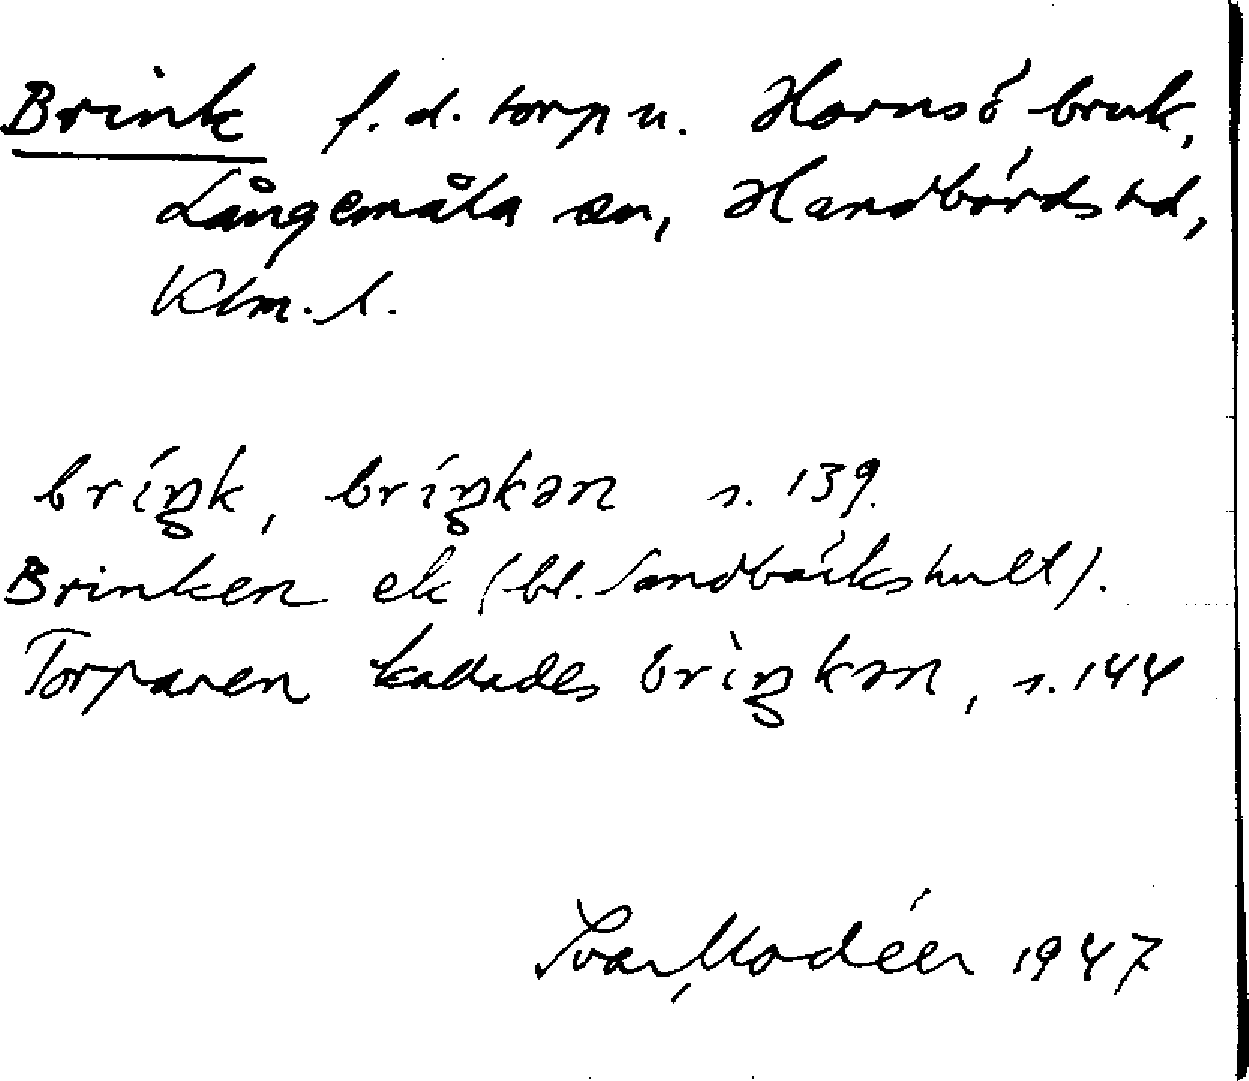 Brink f.d. torp u. Hornsö bruk,
Långemåla sn, Handbörds hd,
Klm. l.
bríŋk, bríŋkən s. 139.
Brinken ek (bl. Sandbäckshult).
Torparen kallades brìŋkən, s. 144
Ivar Modéer 1947